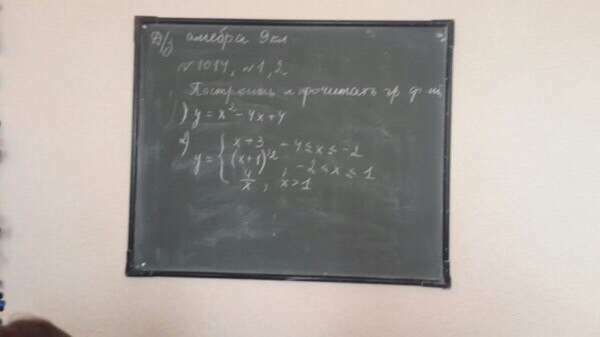 Д/з алгебра 9кл
№1014, №1,2
Построить и прочитать гр ф-ии
1) y = x² - 4x + 4
2) y = { x+3, -4 ≤ x ≤ -2
(x+1)², -2 ≤ x ≤ 1
4/x, x > 1